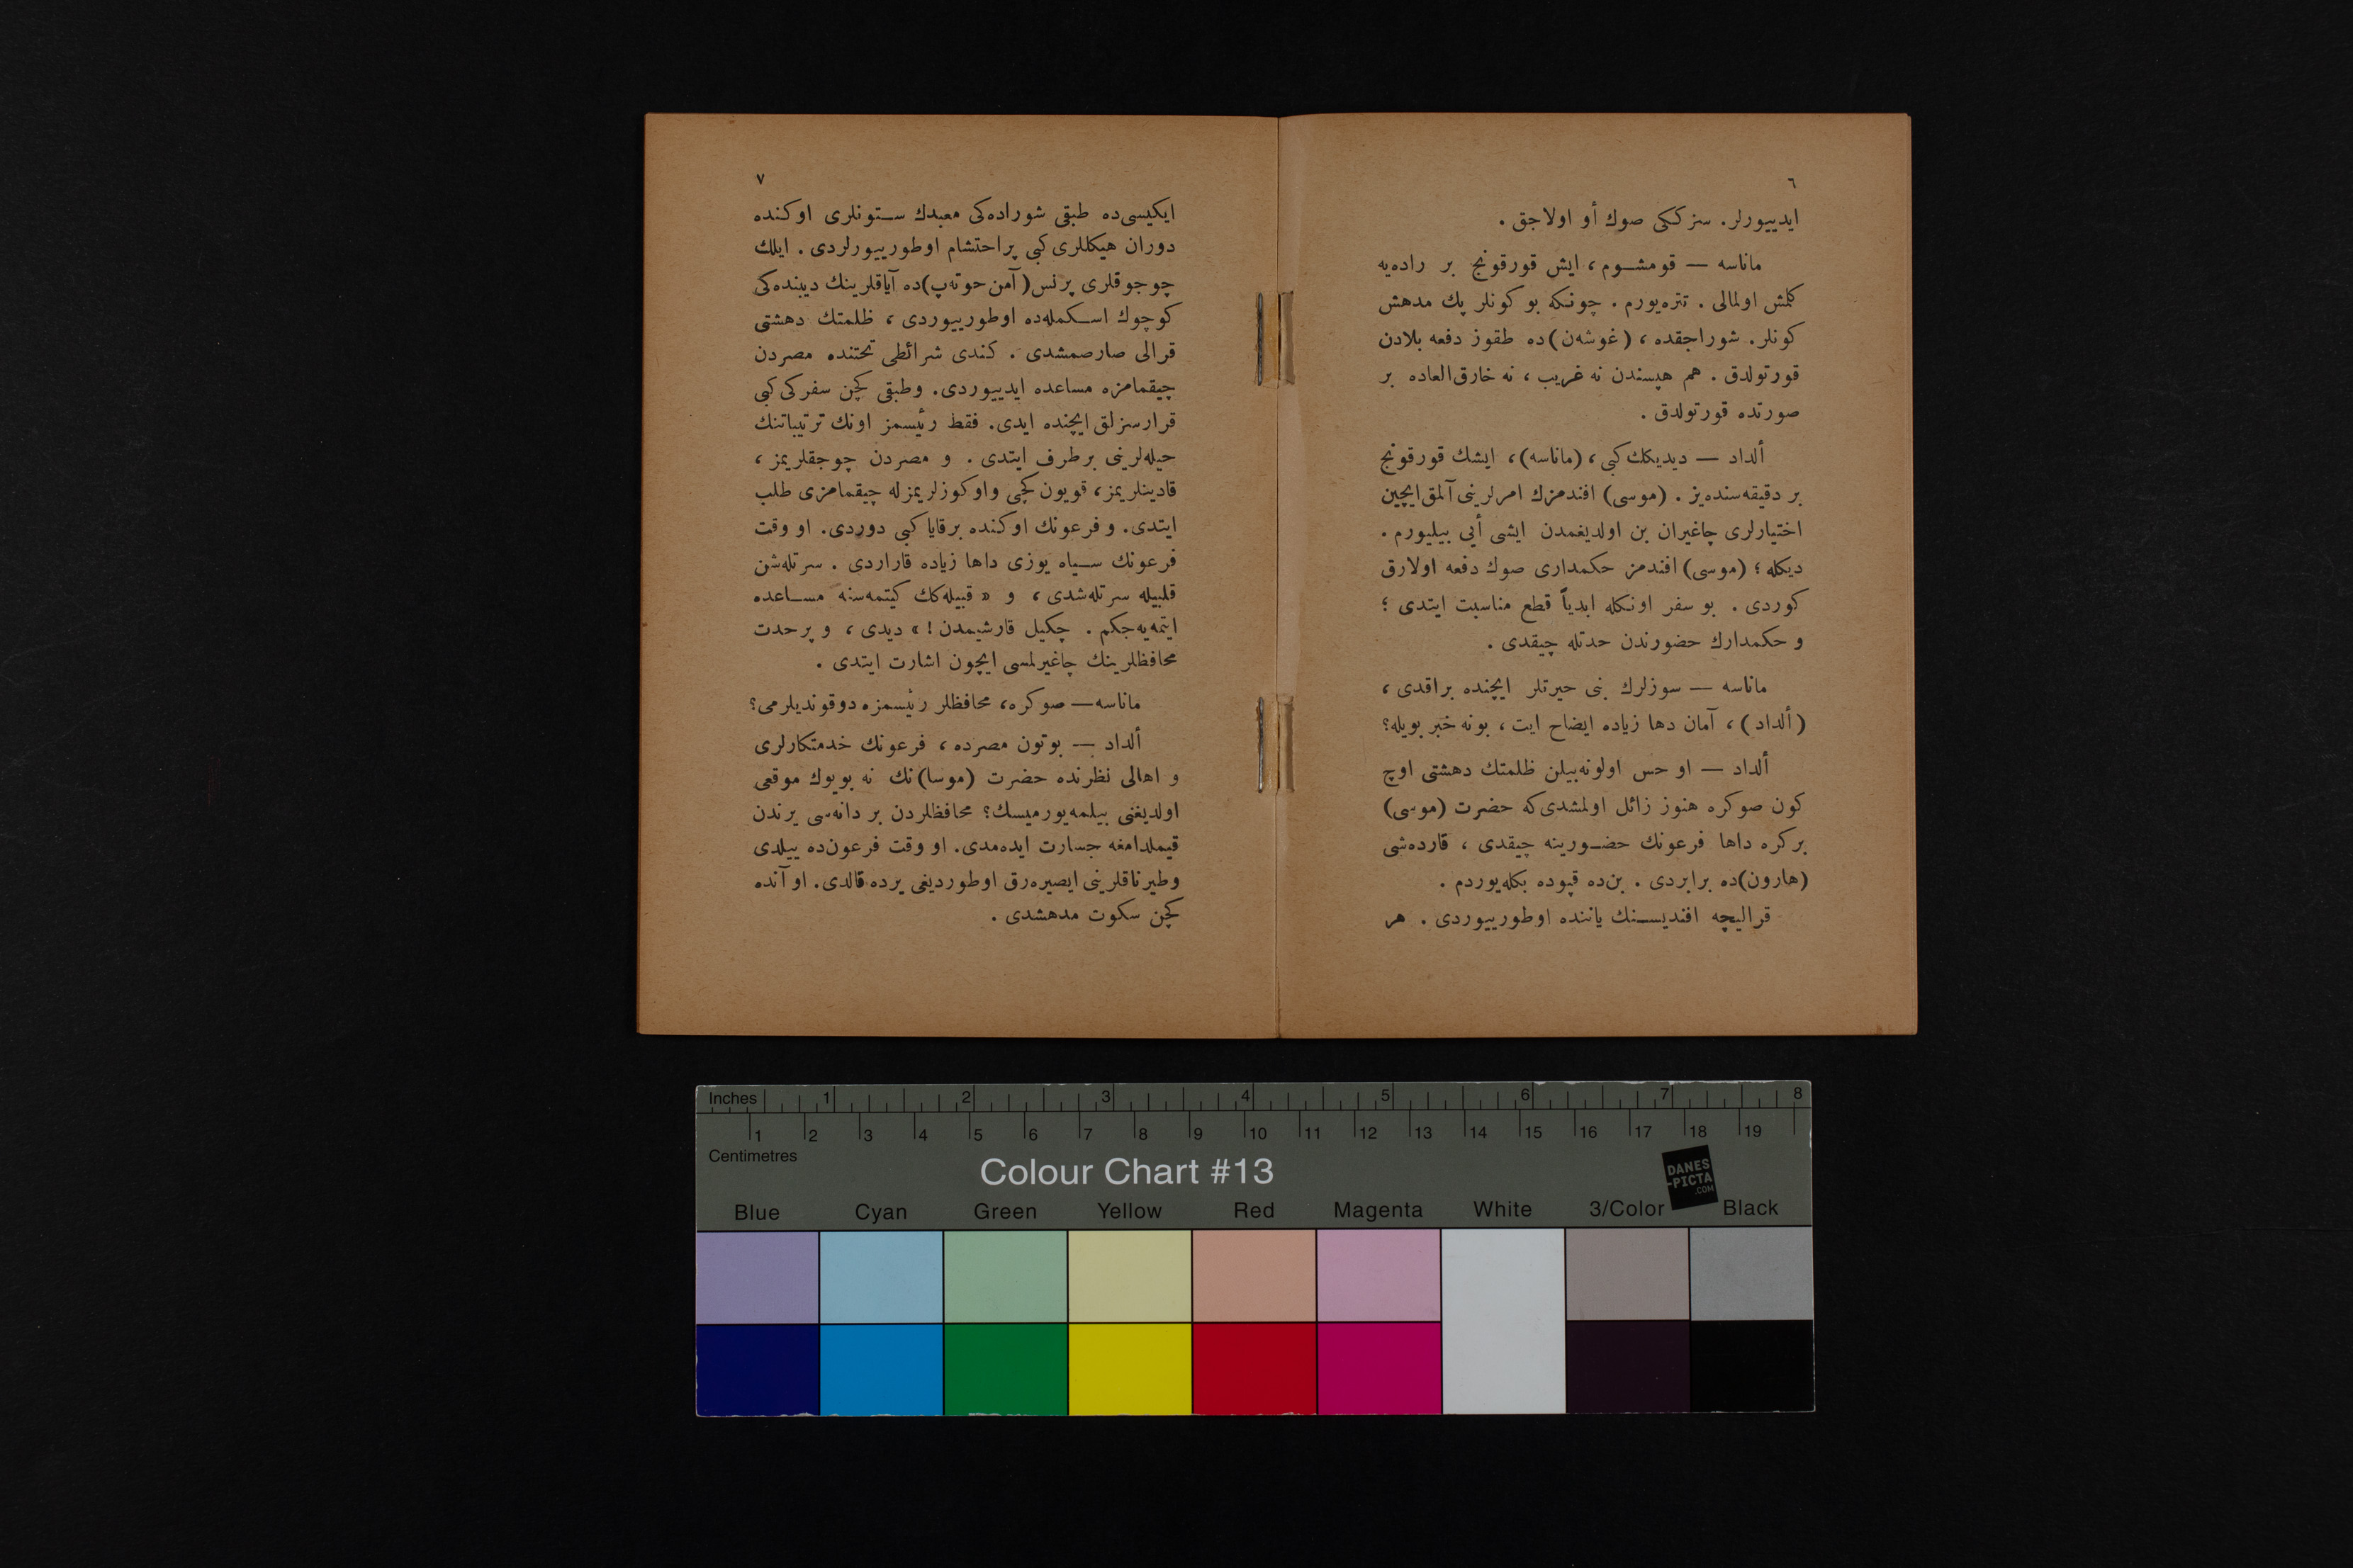 ٦
ايدييورلر. سزككى صوك أو اولاجق .
ماناسه — قومشوم، ايش قورقونج بر راده‌يه
كلمش اولمالى . تتره‌يورم . چونكه بو كونلر پك مدهش
كونلر. شوراجقده ، (غوشه‌ن)ده طقوز دفعه بلادن
قورتولدق . هم هپسندن نه غريب ، نه خارق‌العاده بر
صورتده قورتولدق .
ألداد — ديديكك كبى ، (ماناسه)، ايشك قورقونج
بر دقيقه‌سنده‌يز . (موسى) افندمزك امرلرينى آلمق ايچين
اختيارلرى چاغيران بن اولديغمدن ايشى أيى بيليورم .
ديكله ؛ (موسى) افندمز حكمدارى صوك دفعه اولارق
كوردى . بو سفر اونكله ابدياً قطع مناسبت ايتدى ؛
و حكمدارك حضورندن حدتله چيقدى .
ماناسه — سوزلرك بنى حيرتلر ايچنده براقدى ،
(ألداد) ، آمان دها زياده ايضاح ايت ، بونه خبر بويله؟
ألداد — او حس اولونه‌بيلن ظلمتك دهشتى اوچ
كون صوكره هنوز زائل اولمشدى‌كه حضرت (موسى)
بركره داها فرعونك حضورينه چيقدى ، قارده‌شى
(هارون)ده برابردى . بن‌ده قپوده بكله‌يوردم .
قراليچه افنديسنك ياننده اوطورييوردى . هر
٧
ايكيسى‌ده طبقى شوراده‌كى معبدك ستونلرى اوكنده
دوران هيكللرى كبى پراحتشام اوطورييورلردى . ايلك
چوجوقلرى پرنس (آمن‌حوته‌پ)ده آياقلرينك ديبنده‌كى
كوچوك اسكمله‌ده اوطورييوردى ، ظلمتك دهشتى
قرالى صارصمشدى . كندى شرائطى تحتنده مصردن
چيقمامزه مساعده ايدييوردى. وطبقى كچن سفركى كبى
قرارسزلق ايچنده ايدى. فقط رئيسمز اونك ترتيباتنك
حيله‌لرينى برطرف ايتدى . و مصردن چوجقلريمز ،
قادينلريمز، قويون كچى واوكوزلريمزله چيقمامزى طلب
ايتدى. و فرعونك اوكنده برقايا كبى دوردى. او وقت
فرعونك سياه يوزى داها زياده قاراردى . سرتله‌شن
قلبيله سرتله‌شدى ، و « قبيله‌كك كيتمه‌سنه مساعده
ايتمه‌يه‌جكم . چكيل قارشيمدن ! » ديدى ، و پرحدت
محافظلرينك چاغيرلمسى ايچون اشارت ايتدى .
ماناسه — صوكره، محافظلر رئيسمزه دوقونديلرمى؟
ألداد — بوتون مصرده ، فرعونك خدمتكارلرى
و اهالى نظرنده حضرت (موسا)نك نه بويوك موقعى
اولديغنى بيلمه‌يورميسك؟ محافظلردن بر دانه‌سى يرندن
قيملدامغه جسارت ايده‌مدى. او وقت فرعون‌ده ييلدى
وطيرناقلرينى ايصيره‌رق اوطورديغى يرده قالدى. او آنده
كچن سكوت مدهشدى .
Inches 1 2 3 4 5 6 7 8
1 2 3 4 5 6 7 8 9 10 11 12 13 14 15 16 17 18 19
Centimetres
Colour Chart #13
DANES
-PICTA
.COM
Blue Cyan Green Yellow Red Magenta White 3/Color Black